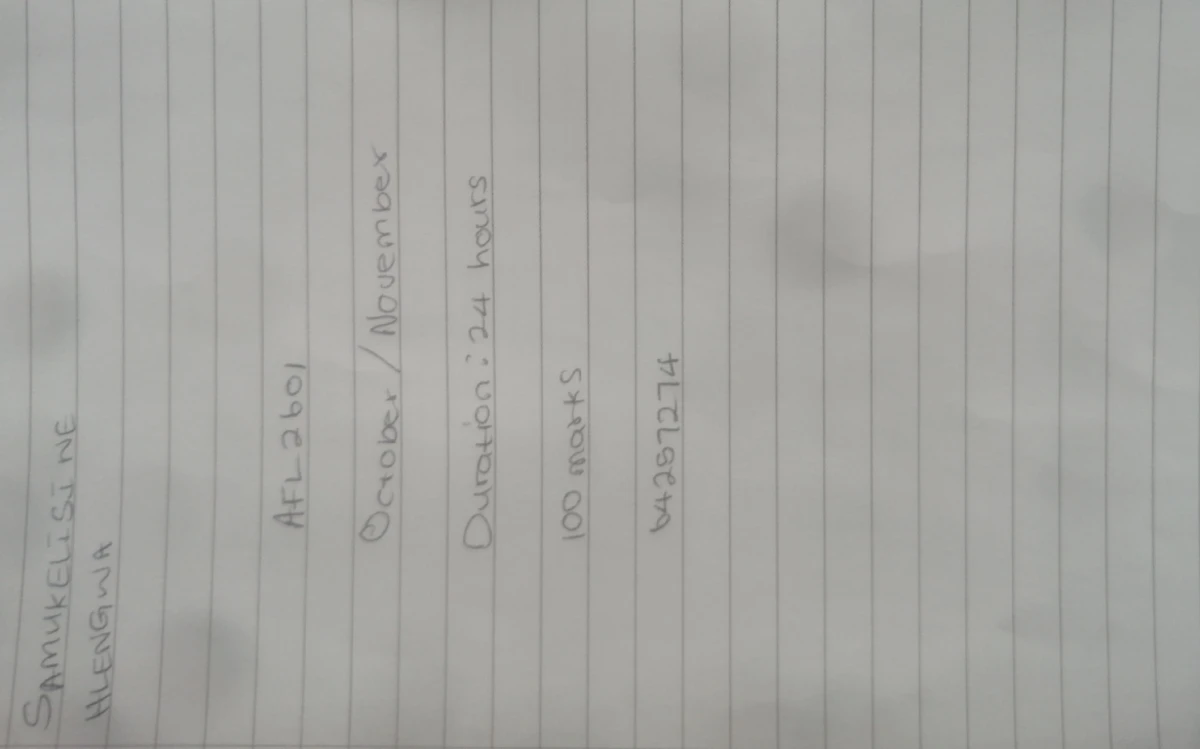 SAMUKELiSiNE
HLENGWA
AFL2601
October / November
Duration : 24 hours
100 marks
64257274